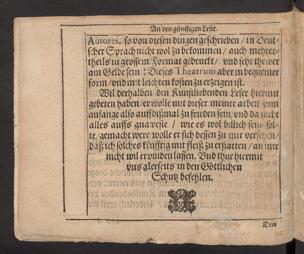 An den günstigen Leser.
Autores, so von diesen dingen geschrieben / in Teut-
scher Sprach nicht wol zu bekommen / auch mehrer-
theils in grossem format gedruckt / und sehr thewer
am Gelde sein: Dieses Theatrum aber in bequemer
form / und mit leichten kosten zu erzeigen ist.
Wil derhalben den Kunstliebenden Leser hiermit
gebeten haben / er wolle mit dieser meiner arbeit zum
anfange also auff dißmal zu frieden sein, und da nicht
alles auffs / wie es wol billich sein sol-
te / gemacht were wolle er sich dessen zu mir versehen /
daß ich solches künfftig mit fleiß zu ersatten / an mir
nicht wil erwinden lassen. Und thue hiermit
uns allerseits in den Göttlichen
Schutz befehlen.
Dem